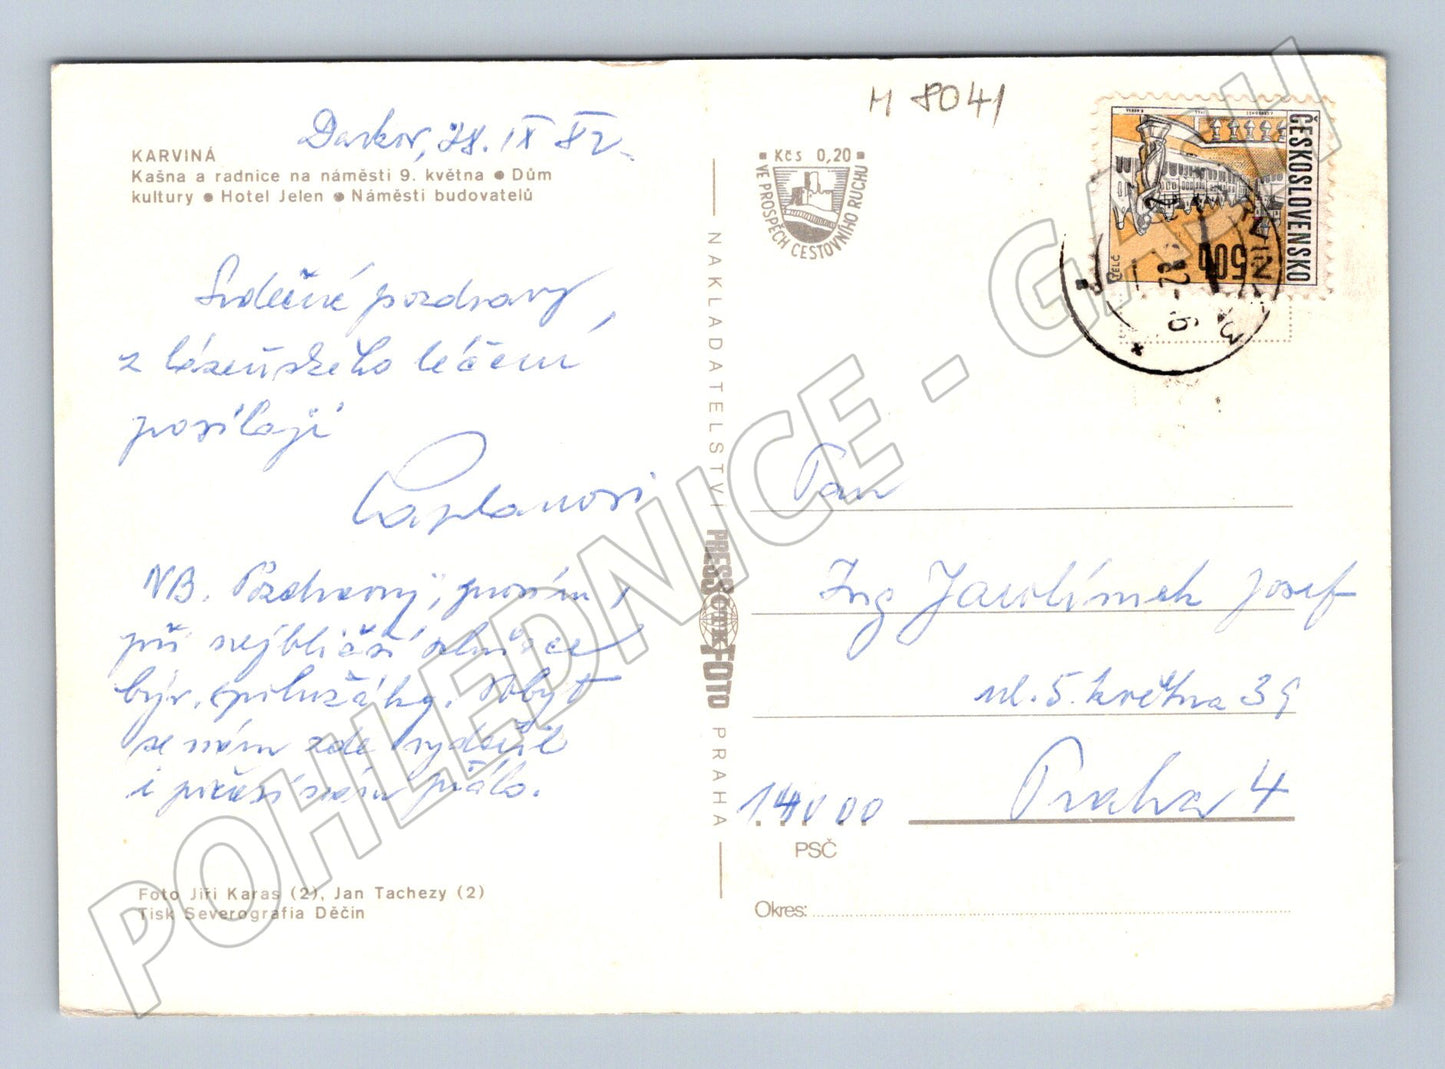 M 8041
Darkov, 28. IX 82
KARVINÁ
Kašna a radnice na náměstí 9. května ● Dům
kultury ● Hotel Jelen ● Náměstí budovatelů
Srdečné pozdravy
z lázeňského léčení
posílají
Kaplanovi
NB. Pozdravuj, prosím,
při nejbližší schůzce
býv. spolužáky. Pobyt
se nám zde vydařil
i počasí nám přálo.
Foto Jiří Karas (2), Jan Tachezy (2)
Tisk Severografia Děčín
NAKLADATELSTVÍ PRESSFOTO PRAHA
ČTK
Kčs 0,20
VE PROSPĚCH CESTOVNÍHO RUCHU
ČESKOSLOVENSKO
50h
TELČ
Pan
Ing Jarolímek Josef
ul. 5. května 39
140 00 Praha 4
PSČ
Okres:
POHLEDNICE - GASH